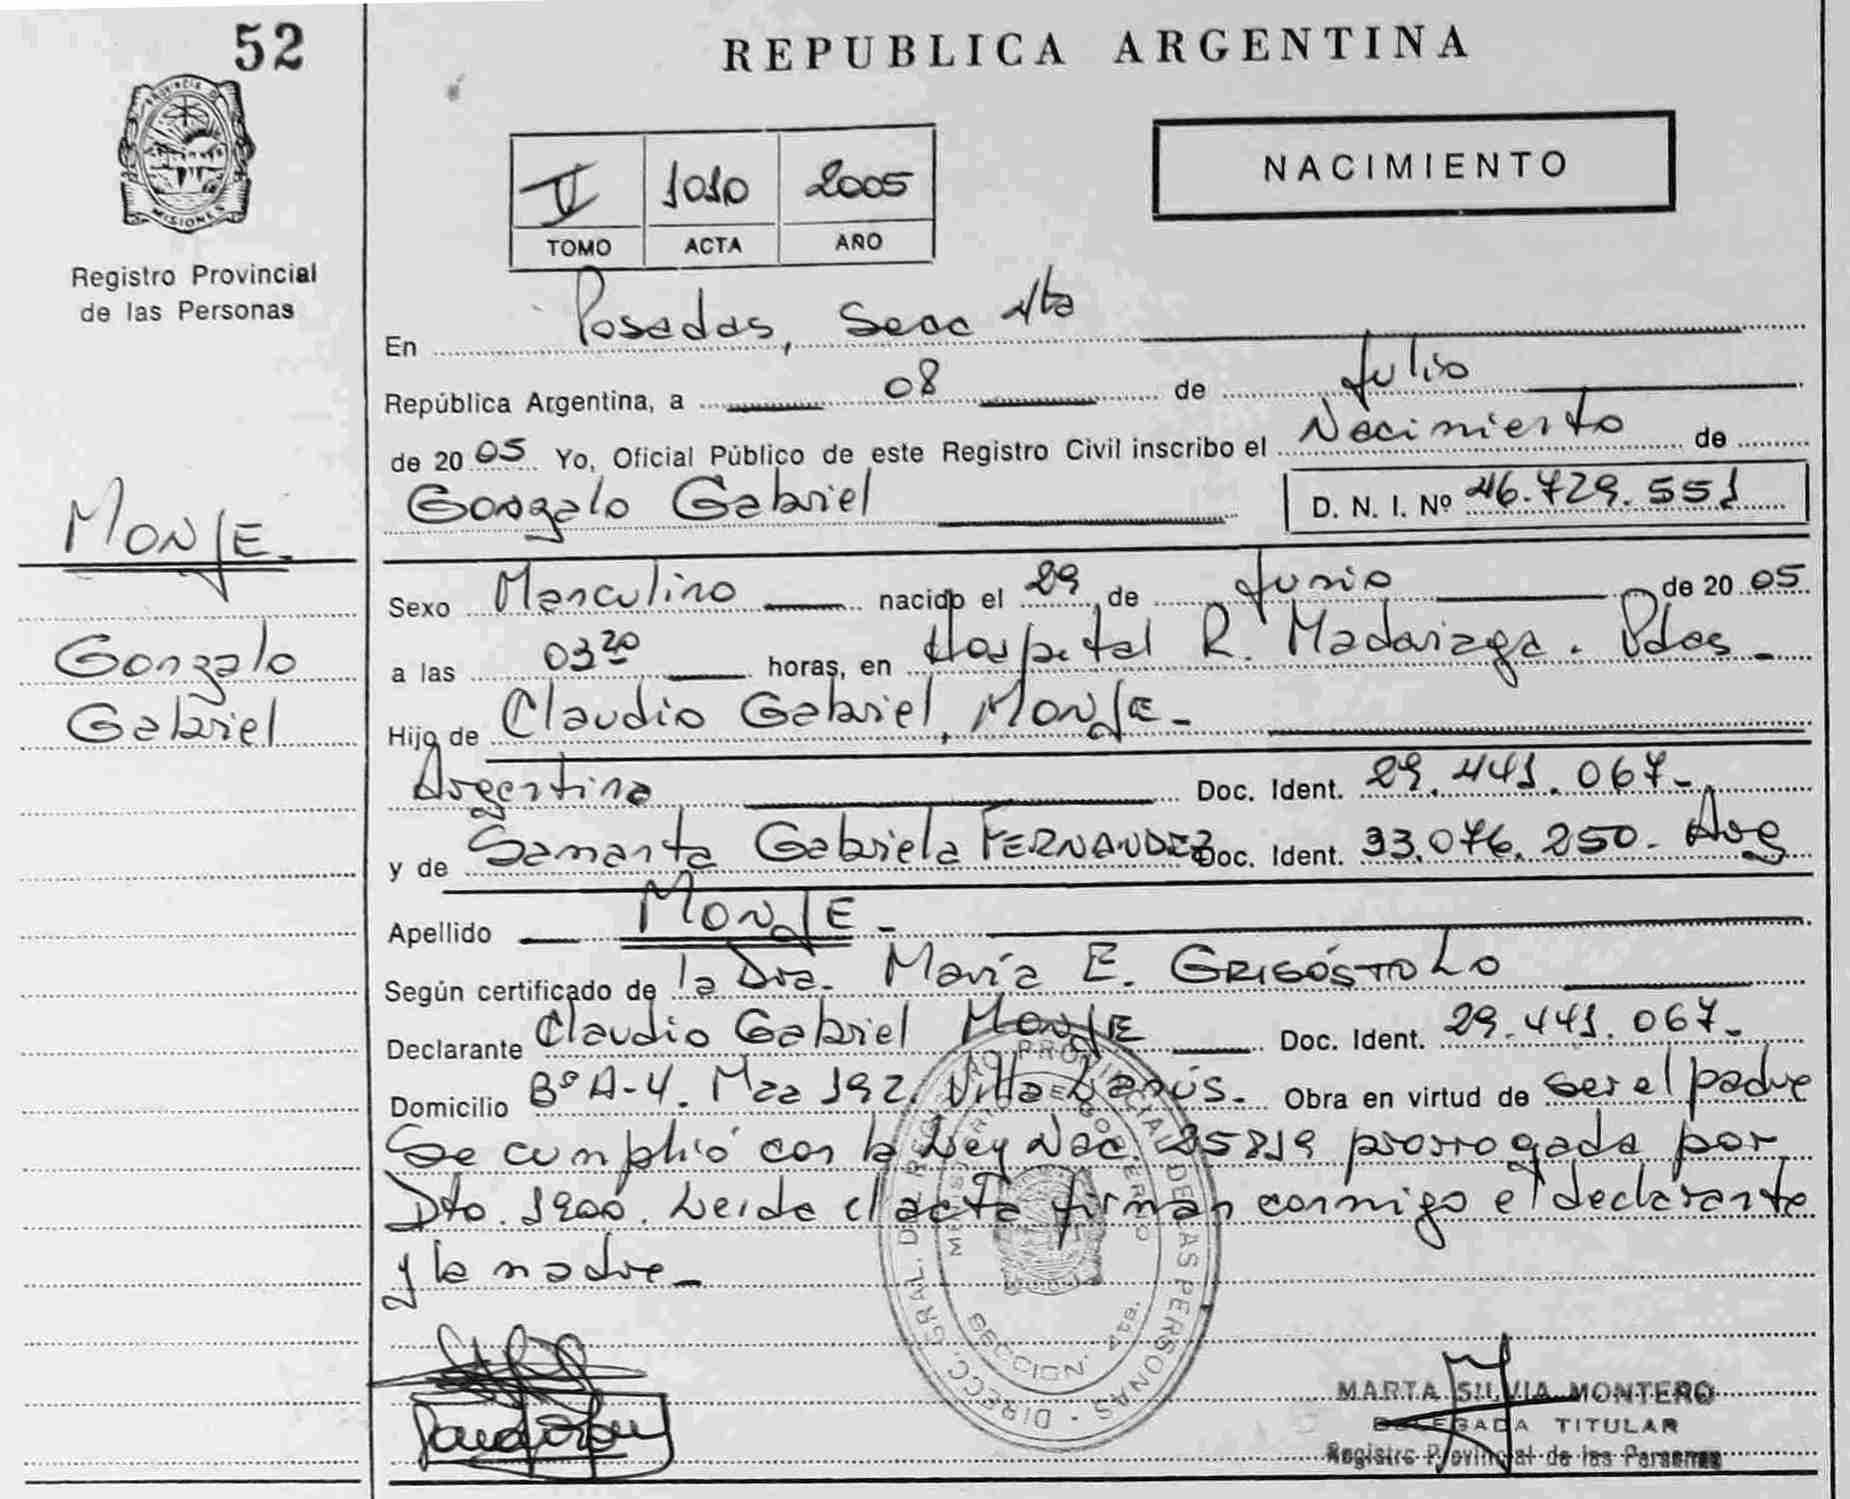 52
REPUBLICA ARGENTINA
PROVINCIA DE
MISIONES
Registro Provincial
de las Personas
V 1010 2005
TOMO ACTA AÑO
NACIMIENTO
En Posadas, Secc 4ta
República Argentina, a 08 de Julio
de 2005 Yo, Oficial Público de este Registro Civil inscribo el Nacimiento de
Gonzalo Gabriel D. N. I. Nº 46.729.551
MONJE
Gonzalo
Gabriel
Sexo Masculino nacido el 29 de Junio de 2005
a las 03 20 horas, en Hospital R. Madariaga. Pdas -
Hijo de Claudio Gabriel MONJE -
Argentina Doc. Ident. 29.441.067-
y de Samanta Gabriela FERNANDEZ Doc. Ident. 33.076.250. Arg
Apellido MONJE -
Según certificado de la Dra. María E.
Declarante Claudio Gabriel MONJE Doc. Ident. 29.441.067-
Domicilio Bº A-4. Mza 192. Villa Lanús. Obra en virtud de ser el padre
Se cumplió con la Ley Nac. 25819 prorrogada por
Dto. 1900. Leida el acta firman conmigo el declarante
y la madre -
DIRECC. GRAL. DEL REGISTRO PROVINCIAL DE LAS PERSONAS
MINISTERIO DE GOBIERNO
SECCION 4ta.
MARTA SILVIA MONTERO
DELEGADA TITULAR
Registro Provincial de las Personas